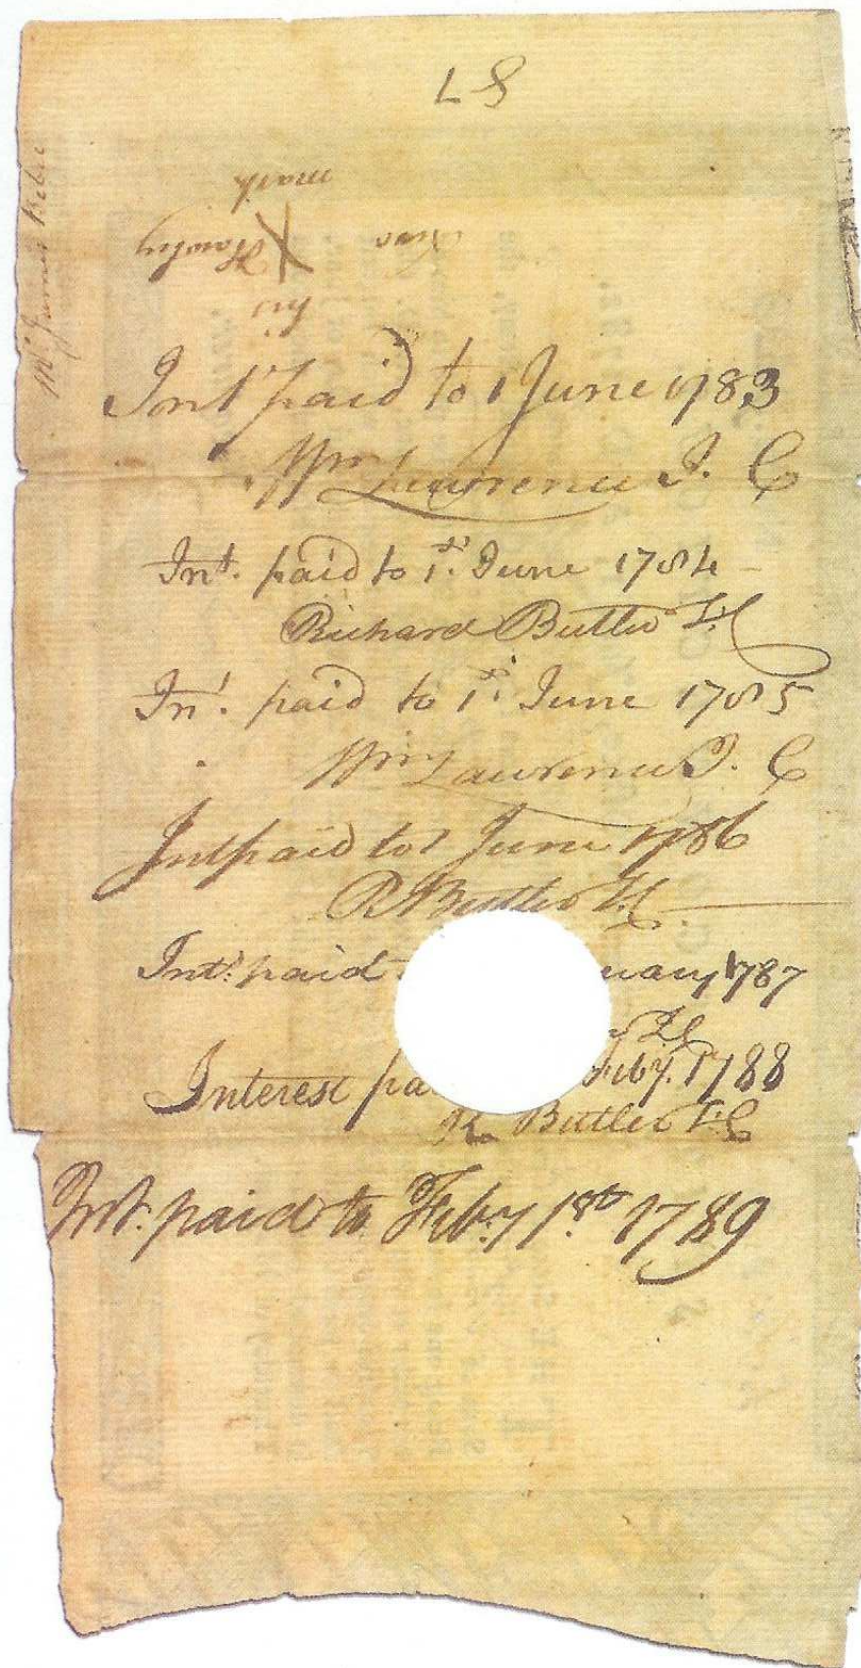 LS
his
X
mark
Int paid to 1 June 1783
Wm Lawrence I. C
Int. paid to 1st. June 1784
Richard Butler I.C
Int. paid to 1st. June 1785
Wm Lawrence I. C
Int paid to 1 June 1786
R Butler I.C
Int. paid uary 1787
I.C
Interest pa Feby. 1788
R Butler I.C
Int. paid to Feby 1st 1789
Mr James